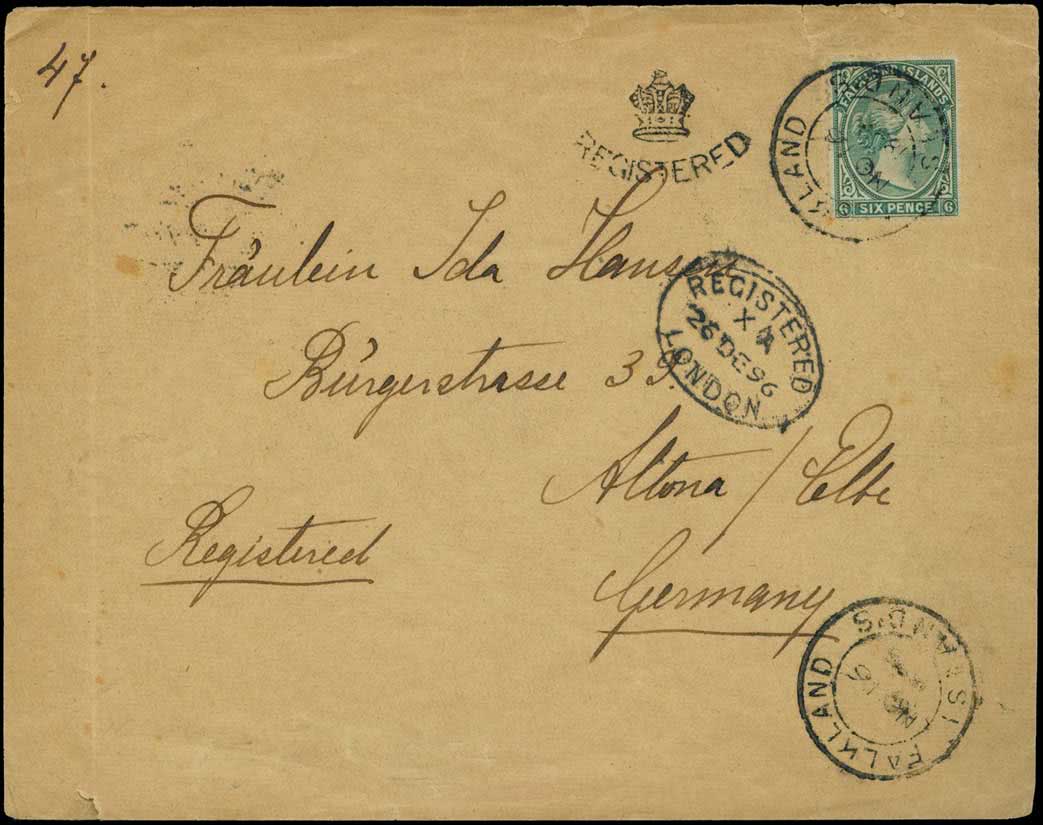 47.
REGISTERED
FALKLAND ISLANDS
FALKLAND ISLANDS
6 SIX PENCE 6
Fräulein Ida Hansen
REGISTERED
X A
26 DE 96
LONDON
Bürgerstrasse 39.
Altona / Elbe
Registered
Germany
FALKLAND ISLANDS
NO